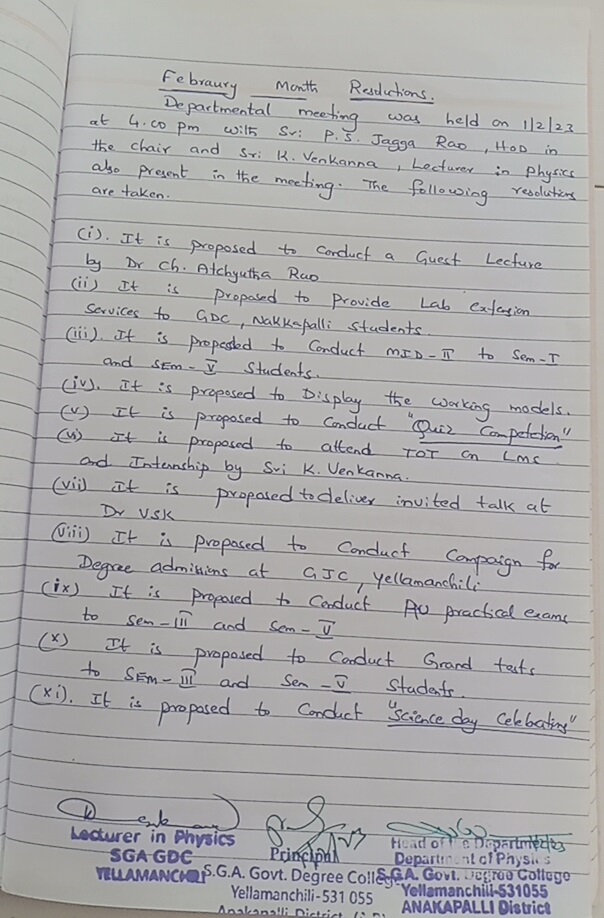 Febraury Month Resolutions.
Departmental meeting was held on 1/2/23
at 4.00 pm with Sri P. S. Jagga Rao, HOD in
the chair and Sri K. Venkanna, Lecturer in Physics
also present in the meeting. The following resolutions
are taken.
(i). It is proposed to conduct a Guest Lecture
by Dr Ch. Atchyutha Rao
(ii) It is proposed to provide Lab extension
Services to GDC, Nakkapalli students
(iii). It is proposed to Conduct MID-II to Sem-I
and SEM-V Students.
(iv). It is proposed to Display the working models.
(v) It is proposed to Conduct "Quiz Competetion"
(vi) It is proposed to attend TOT on LMS
and Internship by Sri K. Venkanna.
(vii) It is proposed to deliver invited talk at
Dr VSK
(viii) It is proposed to Conduct Campaign for
Degree admissions at GJC, Yellamanchili
(ix) It is proposed to Conduct AU practical exams
to Sem-III and Sem-V
(x) It is proposed to Conduct Grand tests
to SEM-III and Sem-V Students.
(xi). It is proposed to Conduct "Science day Celebrations"
Lecturer in Physics
SGA GDC
YELLAMANCHILI
Principal
S.G.A. Govt. Degree College
Yellamanchili-531 055
Anakapalli District
Head of the Department
Department of Physics
S.G.A. Govt. Degree College
Yellamanchili-531055
ANAKAPALLI District